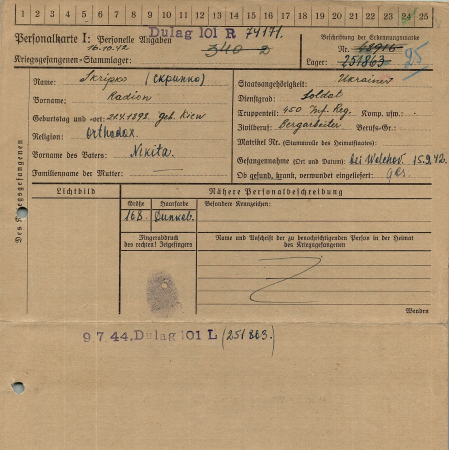 1 2 3 4 5 6 7 8 9 10 11 12 13 14 15 16 17 18 19 20 21 22 23 24 25
Dulag 101 R 74171.
Personalkarte I: Personelle Angaben
16.10.42
Kriegsgefangenen-Stammlager: 340
Beschriftung der Erkennungsmarke
Nr. 25
Lager: 251863
Des Kriegsgefangenen
Name: Skripko (Скрипко)
Vorname: Radion
Geburtstag und -ort: 21.4.1898. geb. Kiew
Religion: Orthodox.
Vorname des Vaters: Nikita.
Familienname der Mutter:
Staatsangehörigkeit: Ukrainer
Dienstgrad: Soldat
Truppenteil: 450 Inf. Reg. Komp. usw.:
Zivilberuf: Bergarbeiter Berufs-Gr.:
Matrikel Nr. (Stammrolle des Heimatstaates):
Gefangennahme (Ort und Datum): bei Wolchov. 15.9.42.
Ob gesund, krank, verwundet eingeliefert: ges.
Lichtbild
Nähere Personalbeschreibung
Größe Haarfarbe
168. Dunkel.
Besondere Kennzeichen:
Fingerabdruck
des rechten! Zeigefingers
Name und Anschrift der zu benachrichtigenden Person in der Heimat
des Kriegsgefangenen
Wenden
9 7. 44. Dulag 101 L (251863.)